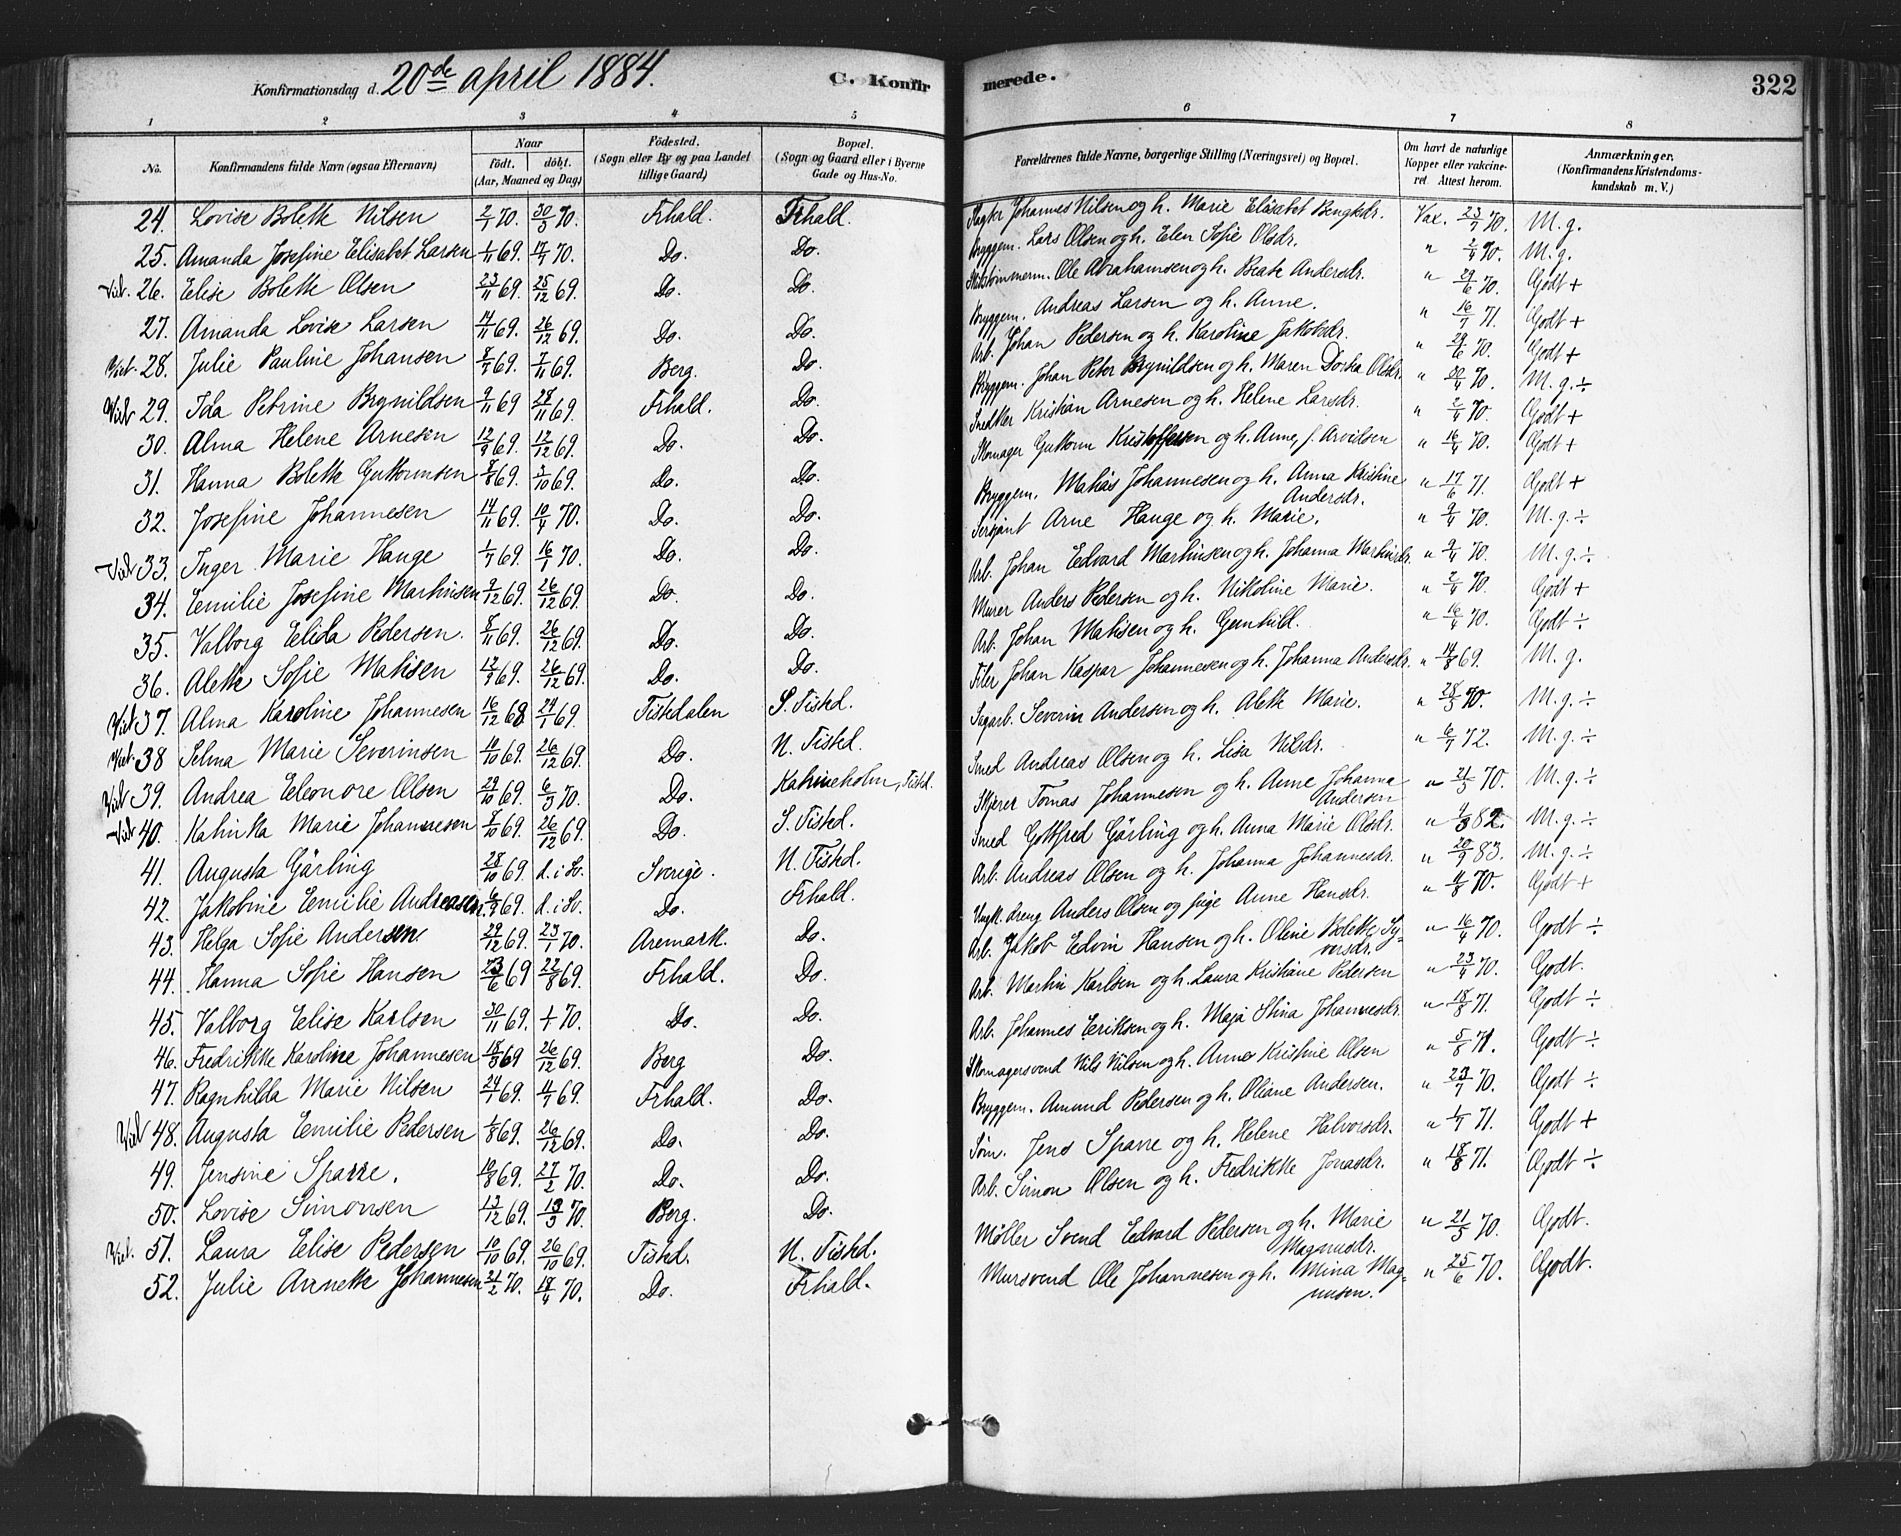 Konfirmationsdag d. 20de april 1884.
C. Konfir
merede.
322
1 2 3 4 5 6 7 8
No.
Konfirmandens fulde Navn (ogsaa Efternavn)
Naar
födt. döbt.
(Aar, Maaned og Dag)
Födested.
(Sogn eller By og paa Landet
tillige Gaard)
Bopæl.
(Sogn og Gaard eller i Byerne
Gade og Hus-No.
Forældrenes fulde Navne, borgerlige Stilling (Næringsvei) og Bopæl.
Om havt de naturlige
Kopper eller vakcine-
ret. Attest herom.
Anmærkninger.
(Konfirmandens Kristendoms-
kundskab m. V.)
24. Lovise Bolette Nilsen 2/1 70. 30/3 70. Frhald. Frhald. Slagter Johannes Nilsen og h. Marie Elisabet Bengtsdr. Vax. 23/7 70. M. g.
25. Amanda Josefine Elisabet Larsen 1/11 69. 17/4 70. Do. Do. Bryggem. Lars Olsen og h. Elen Sofie Olsdr. " 2/4 70. M. g.
Viet. 26. Elise Bolette Olsen 23/11 69. 25/12 69. Do. Do. Skibstømmerm. Ole Abrahamsen og h. Beate Andersdr. " 29/6 70. Godt +
27. Amanda Lovise Larsen 14/11 69. 26/12 69. Do. Do. Bryggem. Andreas Larsen og h. Anne. " 16/7 71. Godt +
Viet. 28. Julie Pauline Johansen 8/7 69. 7/11 69. Berg. Do. Arb. Johan Pedersen og h. Karoline Jakobsdr. " 29/6 70. Godt +
Viet 29. Ida Petrine Brynildsen 9/11 69 28/11 69. Frhald. Do. Bryggem. Johan Peter Brynildsen og h. Maren Dorka Olsdr. " 20/4 70. M. g. ÷
30. Alma Helene Arnesen 12/9 69. 12/12 69. Do. Do. Snedker Kristian Arnesen og h. Helene Larsdr. " 2/4 70. Godt +
31. Hanna Bolette Guttormsen 8/8 69. 3/10 69. Do. Do. Skomager Guttorm Kristoffersen og h. Anne, f. Arvidsen " 16/4 70. Godt +
32. Josefine Johannesen 14/11 69. 10/4 70. Do. Do. Bryggem. Matias Johannesen og h. Anna Kristine " 17/6 71. Godt +
Andersdr.
Viet 33. Inger Marie Hauge 1/7 69. 16/1 70. Do. Do. Sersjant Arne Hauge og h. Marie. " 9/4 70. M. g. ÷
34. Emilie Josefine Martinsen 9/12 69. 26/12 69. Do. Do. Arb. Johan Edvard Martinsen og h. Johanna Martinsdr. " 9/4 70. M. g. ÷
35. Valborg Elida Pedersen. 8/11 69. 26/12 69. Do. Do. Murer Anders Pedersen og h. Nikoline Marie. " 2/4 70. Godt +
36. Alette Sofie Matisen 12/9 69. 26/12 69. Do. Do. Arb. Johan Matisen og h. Gunhild. " 16/4 70. Godt ÷
Viet 37. Alma Karoline Johannesen 16/12 68 24/1 69. Tistedalen S. Tisted. Filer Johan Kaspar Johannesen og h. Johanna Andersdr. " 14/8 69. M. g.
Viet. 38 Selma Marie Severinsen 10/10 69. 26/12 69. Do. N. Tisted. Sagarb. Severin Andersen og h. Alette Marie. " 28/5 70. M. g. ÷
Viet 39. Andrea Eleonore Olsen 29/10 69. 6/3 70. Do. Katrineholm, Tisted. Smed Andreas Olsen og h. Lisa Nilsdr. " 6/7 72. M. g. ÷
Viet 40. Katinka Marie Johannesen 8/10 69. 26/12 69. Do. S. Tisted. Skjærer Tomas Johannesen og h. Anne Johanna " 21/5 70. M. g. ÷
Andersen
41. Augusta Gärling 28/10 69. d. i Sv. Sverige. N. Tisted. Smed Gottfred Gärling og h. Anna Marie Olsdr. " 4/3 82. M. g. ÷
42. Jakobine Emilie Andreasen 6/9 69. d. i Sv. Do. Frhald. Arb. Andreas Olsen og h. Johanna Johannesdr. " 20/9 83. M. g. ÷
43. Helga Sofie Andersen. 29/12 69. 23/1 70. Aremark. Do. Ungk. dreng Anders Olsen og pige Anne Hansdr. " 11/8 70. Godt +
44. Hanna Sofie Hansen 23/6 69 22/8 69. Frhald. Do. Arb. Jakob Edvin Hansen og h. Oline Bolette Sy- " 16/4 70. Godt ÷
versdr.
45. Valborg Elise Karlsen 30/11 69. + 70. Do. Do. Arb. Martin Karlsen og h. Laura Kristiane Pedersen " 23/4 70. Godt.
46. Fredrikke Karoline Johannesen 18/3 69 26/12 69. Berg Do. Arb. Johannes Eriksen og h. Maja Stina Johannesdr. " 18/8 71. Godt ÷
47. Ragnhilda Marie Nilsen 24/1 69. 4/7 69. Frhald. Do. Skomagersvend Nils Nilsen og h. Anne Kristine Olsen " 5/8 71. Godt ÷
Viet 48. Augusta Emilie Pedersen 1/8 69. 26/12 69. Do. Do. Bryggem. Amund Pedersen og h. Oliane Andersen. " 23/7 70. Godt ÷
49. Jensine Sparre. 10/8 69. 27/2 70. Do. Do. Søm. Jens Sparre og h. Helene Halvorsdr. " 1/7 71. Godt +
50. Lovise Simonsen 13/12 69. 13/3 70. Berg. Do. Arb. Simon Olsen og h. Fredrikke Jonasdr. " 18/8 71. Godt ÷
Viet. 51. Laura Elise Pedersen 10/10 69. 26/10 69. Tisted. N. Tisted. Möller Svend Edvard Pedersen og h. Marie " 21/5 70. Godt.
Magnusdr.
52. Julie Annette Johannesen 21/2 70. 18/4 70. Do. Frhald. Mursvend Ole Johannesen og h. Mina Mag- " 25/6 70. Godt.
nusen.